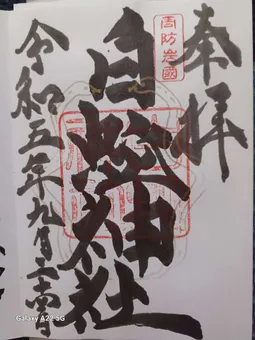 奉拝
周防岩國
白蛇神社
令和五年九月
Galaxy A22 5G